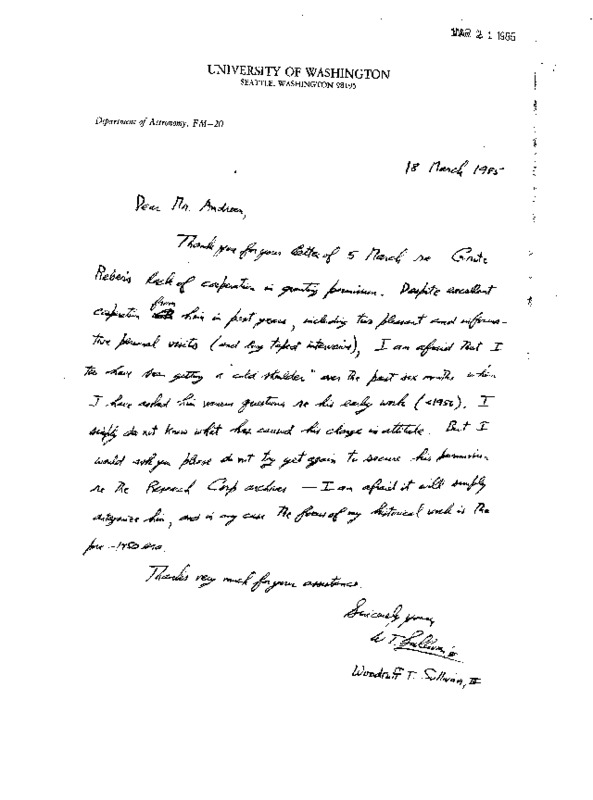 MAR 21 1985
UNIVERSITY OF WASHINGTON
SEATTLE, WASHINGTON 98195
Department of Astronomy, FM-20
18 March 1985
Dear Mr. Andreen,
Thank you for your letter of 5 March re Grote
Reber's lack of cooperation in granting permission. Despite excellent
cooperation from him in past years, including two pleasant and informa-
tive personal visits (and long taped interviews), I am afraid that I
too have been getting a "cold shoulder" over the past six months when
I have asked him various questions re his early work (<1950). I
simply do not know what has caused his change in attitude. But I
would ask you please do not try yet again to secure his permission
re the Research Corp archives — I am afraid it will simply
antagonize him, and in any case the focus of my historical work is the
pre-1950 era.
Thanks very much for your assistance.
Sincerely yours,
W T. Sullivan III
Woodruff T. Sullivan, III